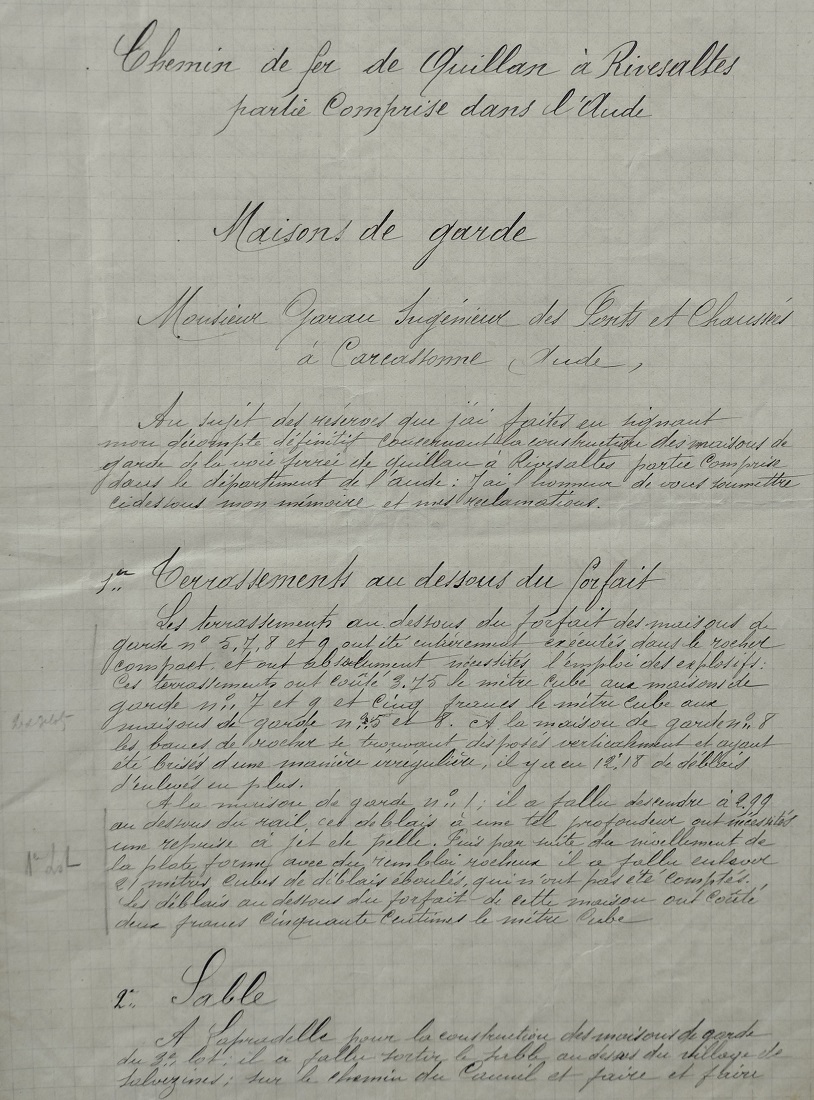 Chemin de fer de Quillan à Rivesaltes
partie Comprise dans l'Aude
Maisons de garde
Monsieur Garau Ingénieur des Ponts et Chaussés
à Carcassonne (Aude,
Au sujet des réserves que j'ai faites en signant
mon décompte définitif concernant la construction des maisons de
garde de la voie ferrée de Quillan à Rivesaltes partie Comprise
dans le département de l'Aude : J'ai l'honneur de vous soumettre
cidessous mon mémoire et mes réclamations.
1er Terrassements au dessous du forfait
Les terrassements au dessous du forfait des maisons de
garde nos 5, 7, 8 et 9 ont été entièrement exécutés dans le rocher
compact et ont absolument nécessités l'emploi des explosifs :
Ces terrassements ont coûté 3.75 le mètre Cube aux maisons de
garde nos 7 et 9 et cinq francs le mètre Cube aux
maisons de garde nos 5 et 8. A la maison de garde no 8
les bancs de rocher se trouvant disposés verticalement et ayant
été brisés d'une manière irrégulière, il y a eu 12.18 de déblais
d'enlevés en plus.
A la maison de garde no 1 ; il a fallu descendre à 2.99
au dessous du rail, ces déblais à une tel profondeur ont nécessités
une reprise à jet de pelle. Puis par suite du nivellement de
la plate forme avec du remblai rocheux il a fallu enlever
21 mètres Cubes de déblais éboulés, qui n'ont pas été comptés.
Les déblais au dessous du forfait de cette maison ont coûté
deux francs cinquante centimes le mètre Cube
1er lot
2o Sable
A Lapradelle pour la construction des maisons de garde
du 3e lot ; il a fallu sortir le sable au dessus du village de
Salvezines ; sur le chemin du et faire et faire